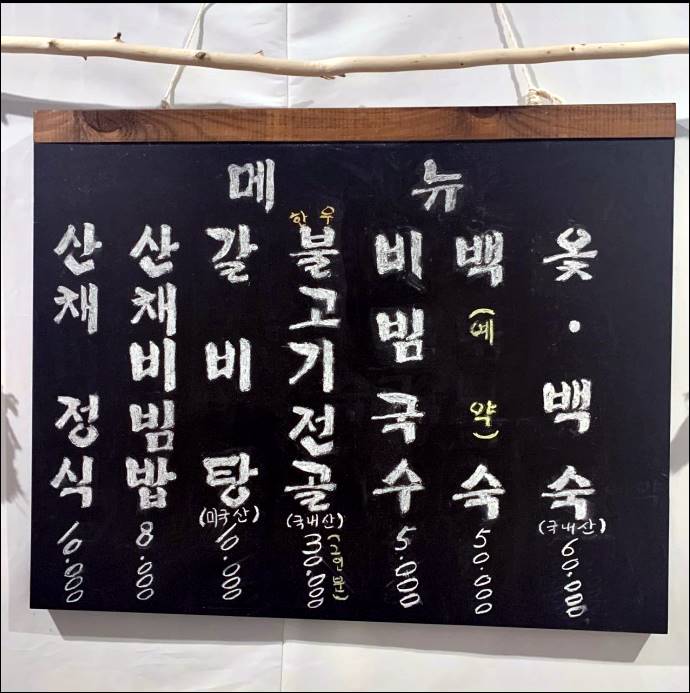 메뉴
산채 정식 10.000
산채비빔밥 8.000
갈비탕 (미국산) 10.000
한우 불고기전골 (국내산) 30.000 (2인분)
비빔국수 5.000
백 (예약) 숙 50.000
옻·백숙 (국내산) 60.000